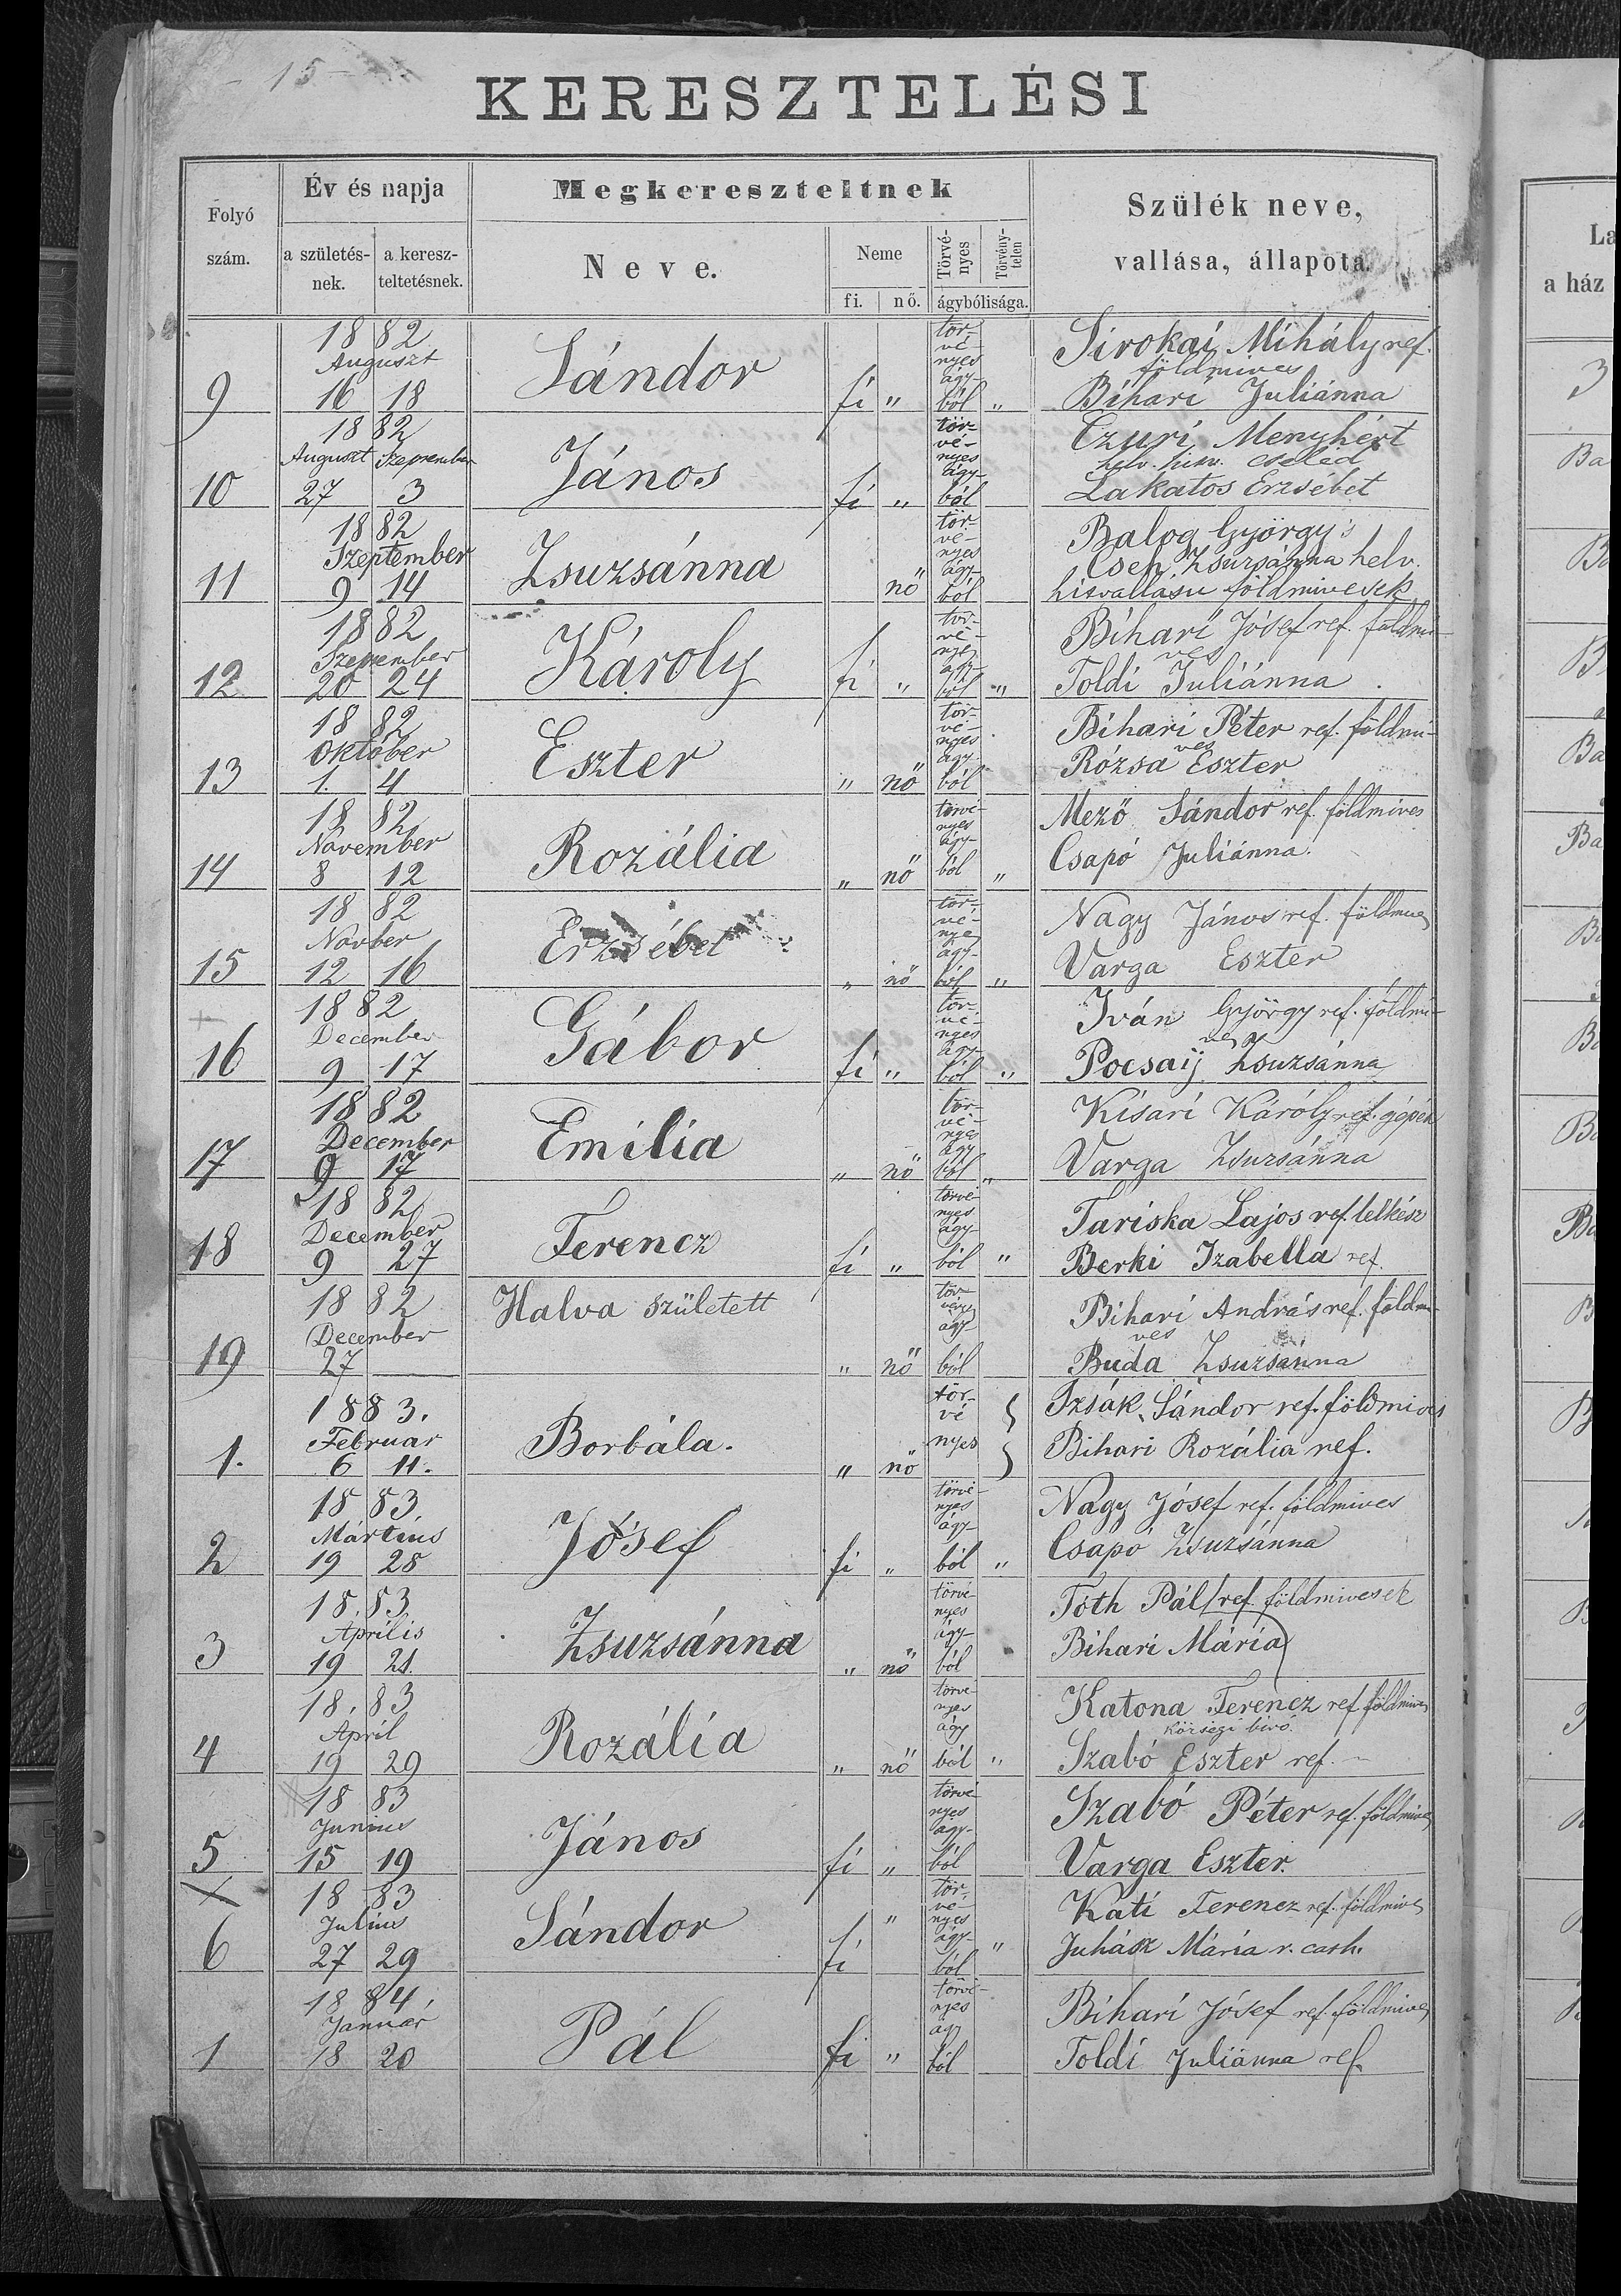 - 15 -
KERESZTELÉSI
Folyó szám.
Év és napja
a születés-nek.
a keresz-teltetésnek.
Megkereszteltnek
Neve.
Neme
fi.
nő.
Törvé-nyes
Törvény-telen
ágybólisága.
Szülék neve,
vallása, állapota.
La
a ház
9 1882 Auguszt 16 18 Sándor fi „ tör-vé-nyes ágy-ból „ Sirokai Mihály ref. földmives
Bihari Juliánna
10 1882 Auguszt 27 Szeptember 3 János fi „ tör-vé-nyes ágy-ból Czuri Menyhért
helv. hitv. cseléd
Lakatos Erzsébet
11 1882 Szeptember 9 14 Zsuzsánna „ nő tör-vé-nyes ágy-ból Balog György s
Cseh Zsuzsánna helv.
hitvallásu földmivesek
12 1882 Szeptember 20 24 Károly fi „ tör-vé-nyes ágy-ból „ Bihari Jósef ref. földmi-ves
Toldi Juliánna
13 1882 Október 1. 4 Eszter „ nő tör-vé-nyes ágy-ból Bihari Péter ref. földmi-ves
Rózsa Eszter
14 1882 November 8 12 Rozália „ nő törvé-nyes ágy-ból „ Mező Sándor ref. földmives
Csapó Juliánna.
15 1882 Novber 12 16 Erzsébet „ nő tör-vé-nyes ágy-ból „ Nagy János ref. földmives
Varga Eszter
16 1882 December 9 17 Gábor fi „ tör-vé-nyes ágy-ból „ Iván György ref. földmi-ves
Pocsaij Zsuzsánna
17 1882 December 9 17 Emilia „ nő tör-vé-nyes ágy ból „ Kisari Károly ref. gépész
Varga Zsuzsánna
18 1882 December 9 27 Ferencz fi „ törvé-nyes ágy-ból „ Tariska Lajos ref. lelkész
Berki Izabella ref.
19 1882 December 27 Halva született „ nő tör-vény ágy-ból Bihari András ref. földmi-ves
Buda Zsuzsanna
1. 1883. Februar 6 11. Borbála. „ nő tör-vé nyes Izsák Sándor ref. földmives
Bihari Rozália ref.
2 1883. Mártius 19 28 Jósef fi „ törvé-nyes ágy-ból „ Nagy Jósef ref. földmives
Csapó Zsuzsánna
3 18.83 Április 19 21. Zsuzsánna „ nő törvé-nyes ágy-ból Tóth Pál ref. földmivesek
Bihari Mária
4 18.83 April 19 29 Rozália „ nő törvé-nyes ágy ból „ Katona Ferencz ref földmives
községi biró.
Szabó Eszter ref.
5 1883 Junius 15 19 János fi „ törvé-nyes ágy-ból Szabó Péter ref. földmives
Varga Eszter.
6 1883 Julius 27 29 Sándor fi „ tör-vé-nyes ágy-ból „ Kati Ferencz ref. földmives
Juhász Mária r. cath.
1 1884. Január 18 20 Pál fi „ törvé-nyes ágy ból Bihari Jósef ref. földmives
Toldi Juliánna ref.